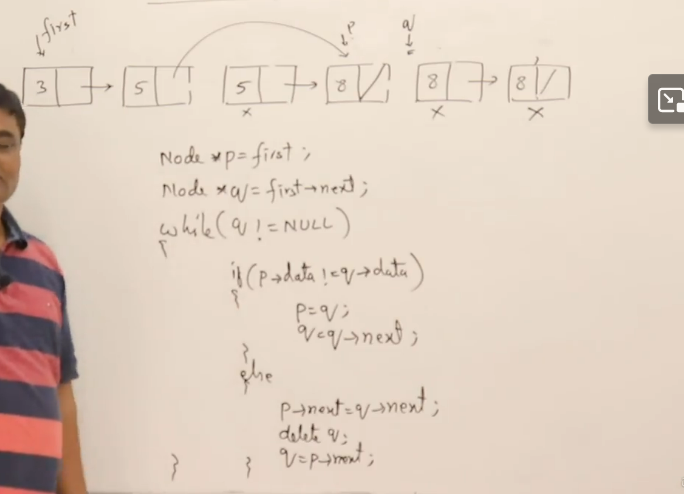 first
p
q
3 5 5 8 8 8
x x x
Node *p=first;
Node *q=first→next;
while(q!=NULL)
{
if(p→data!=q→data)
{
p=q;
q=q→next;
}
else
{
p→next=q→next;
delete q;
q=p→next;
}
}